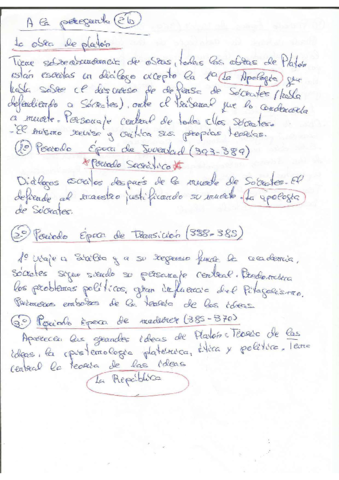 A la pregunta 2b
La obra de platón
Tiene sobreabundancia de obras, todas las obras de Platón
están escritas en diálogo excepto la 1ª La Apología que
habla sobre el discurso de defensa de Sócrates (habla
defendiendo a Sócrates), ante el tribunal que lo condenaría
a muerte. Personaje central de todas ellas Sócrates.
- El mismo reviso y critica sus propias teorías.
1º Periodo Época de Juventud (393-389)
* Periodo Socrático *
Diálogos escritos después de la muerte de Sócrates. El
defiende al maestro justificando su muerte. La apología
de Sócrates.
2º Periodo Época de Transición (388-385)
1º viaje a Sicilia y a su regreso funda la academia,
Sócrates sigue siendo su personaje central. Predominan
los problemas políticos, gran influencia del Pitagorismo.
Primeros esbozos de la teoría de las ideas.
3º Periodo Época de madurez (385-370)
Aparecen las grandes ideas de Platón: Teoría de las
ideas, la epistemología platónica, ética y política. Tema
central la teoría de las ideas
La República